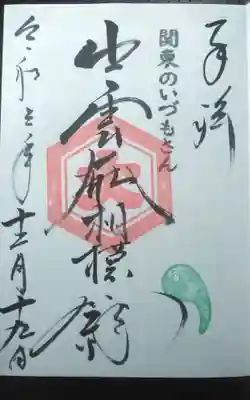 奉拝
関東のいづもさん
出雲大社相模分祠
令和三年
十二月十九日